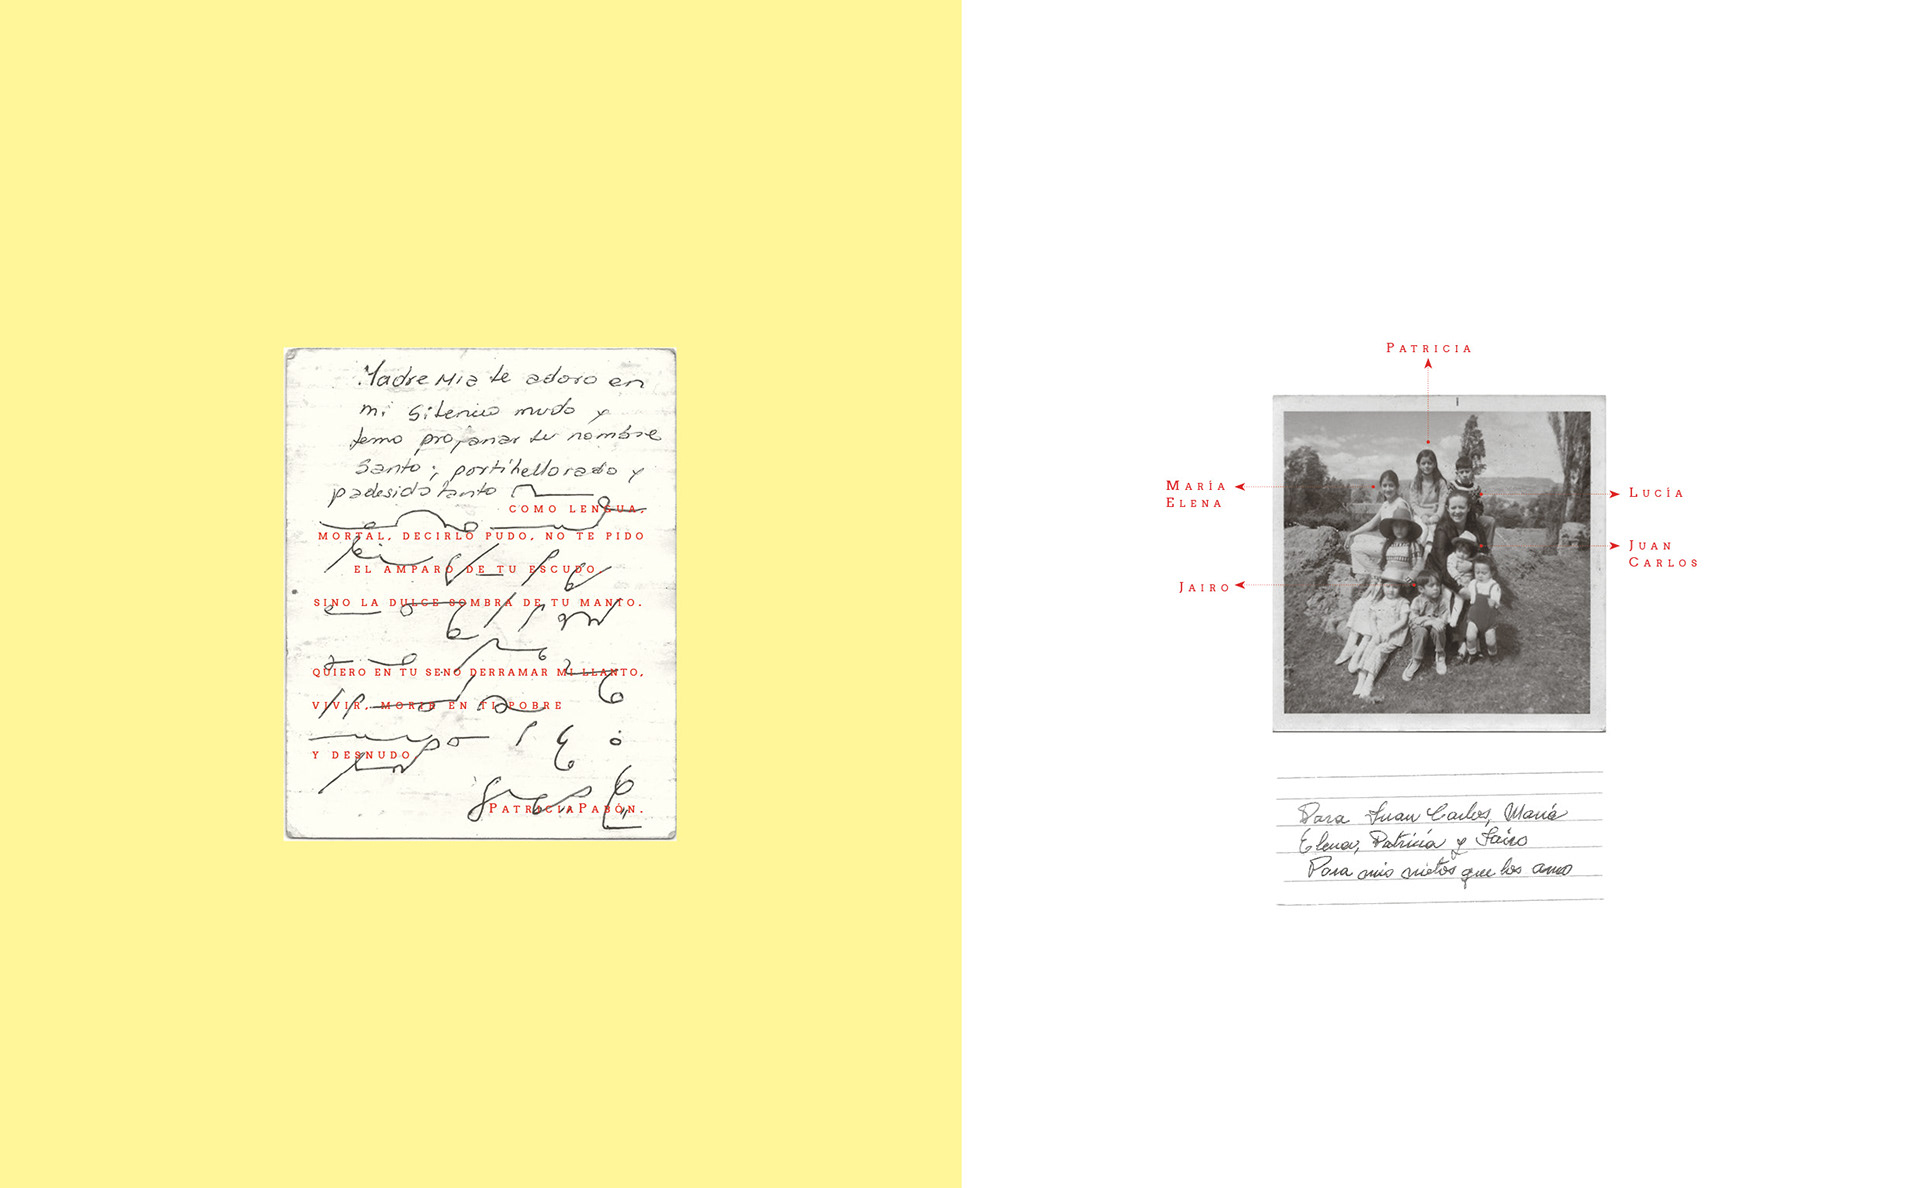 Madre Mia te adoro en
mi silencio mudo y
temo profanar tu nombre
Santo; por ti he llorado y
padesido tanto
COMO LENGUA.
MORTAL, DECIRLO PUDO, NO TE PIDO
EL AMPARO DE TU ESCUDO
SINO LA DULCE SOMBRA DE TU MANTO.
QUIERO EN TU SENO DERRAMAR MI LLANTO,
VIVIR, MORIR EN TI POBRE
Y DESNUDO
PATRICIA PABÓN.
PATRICIA
MARÍA
ELENA
LUCÍA
JUAN
CARLOS
JAIRO
Para Juan Carlos, María
Elena, Patricia y Jairo
Para mis nietos que los amo